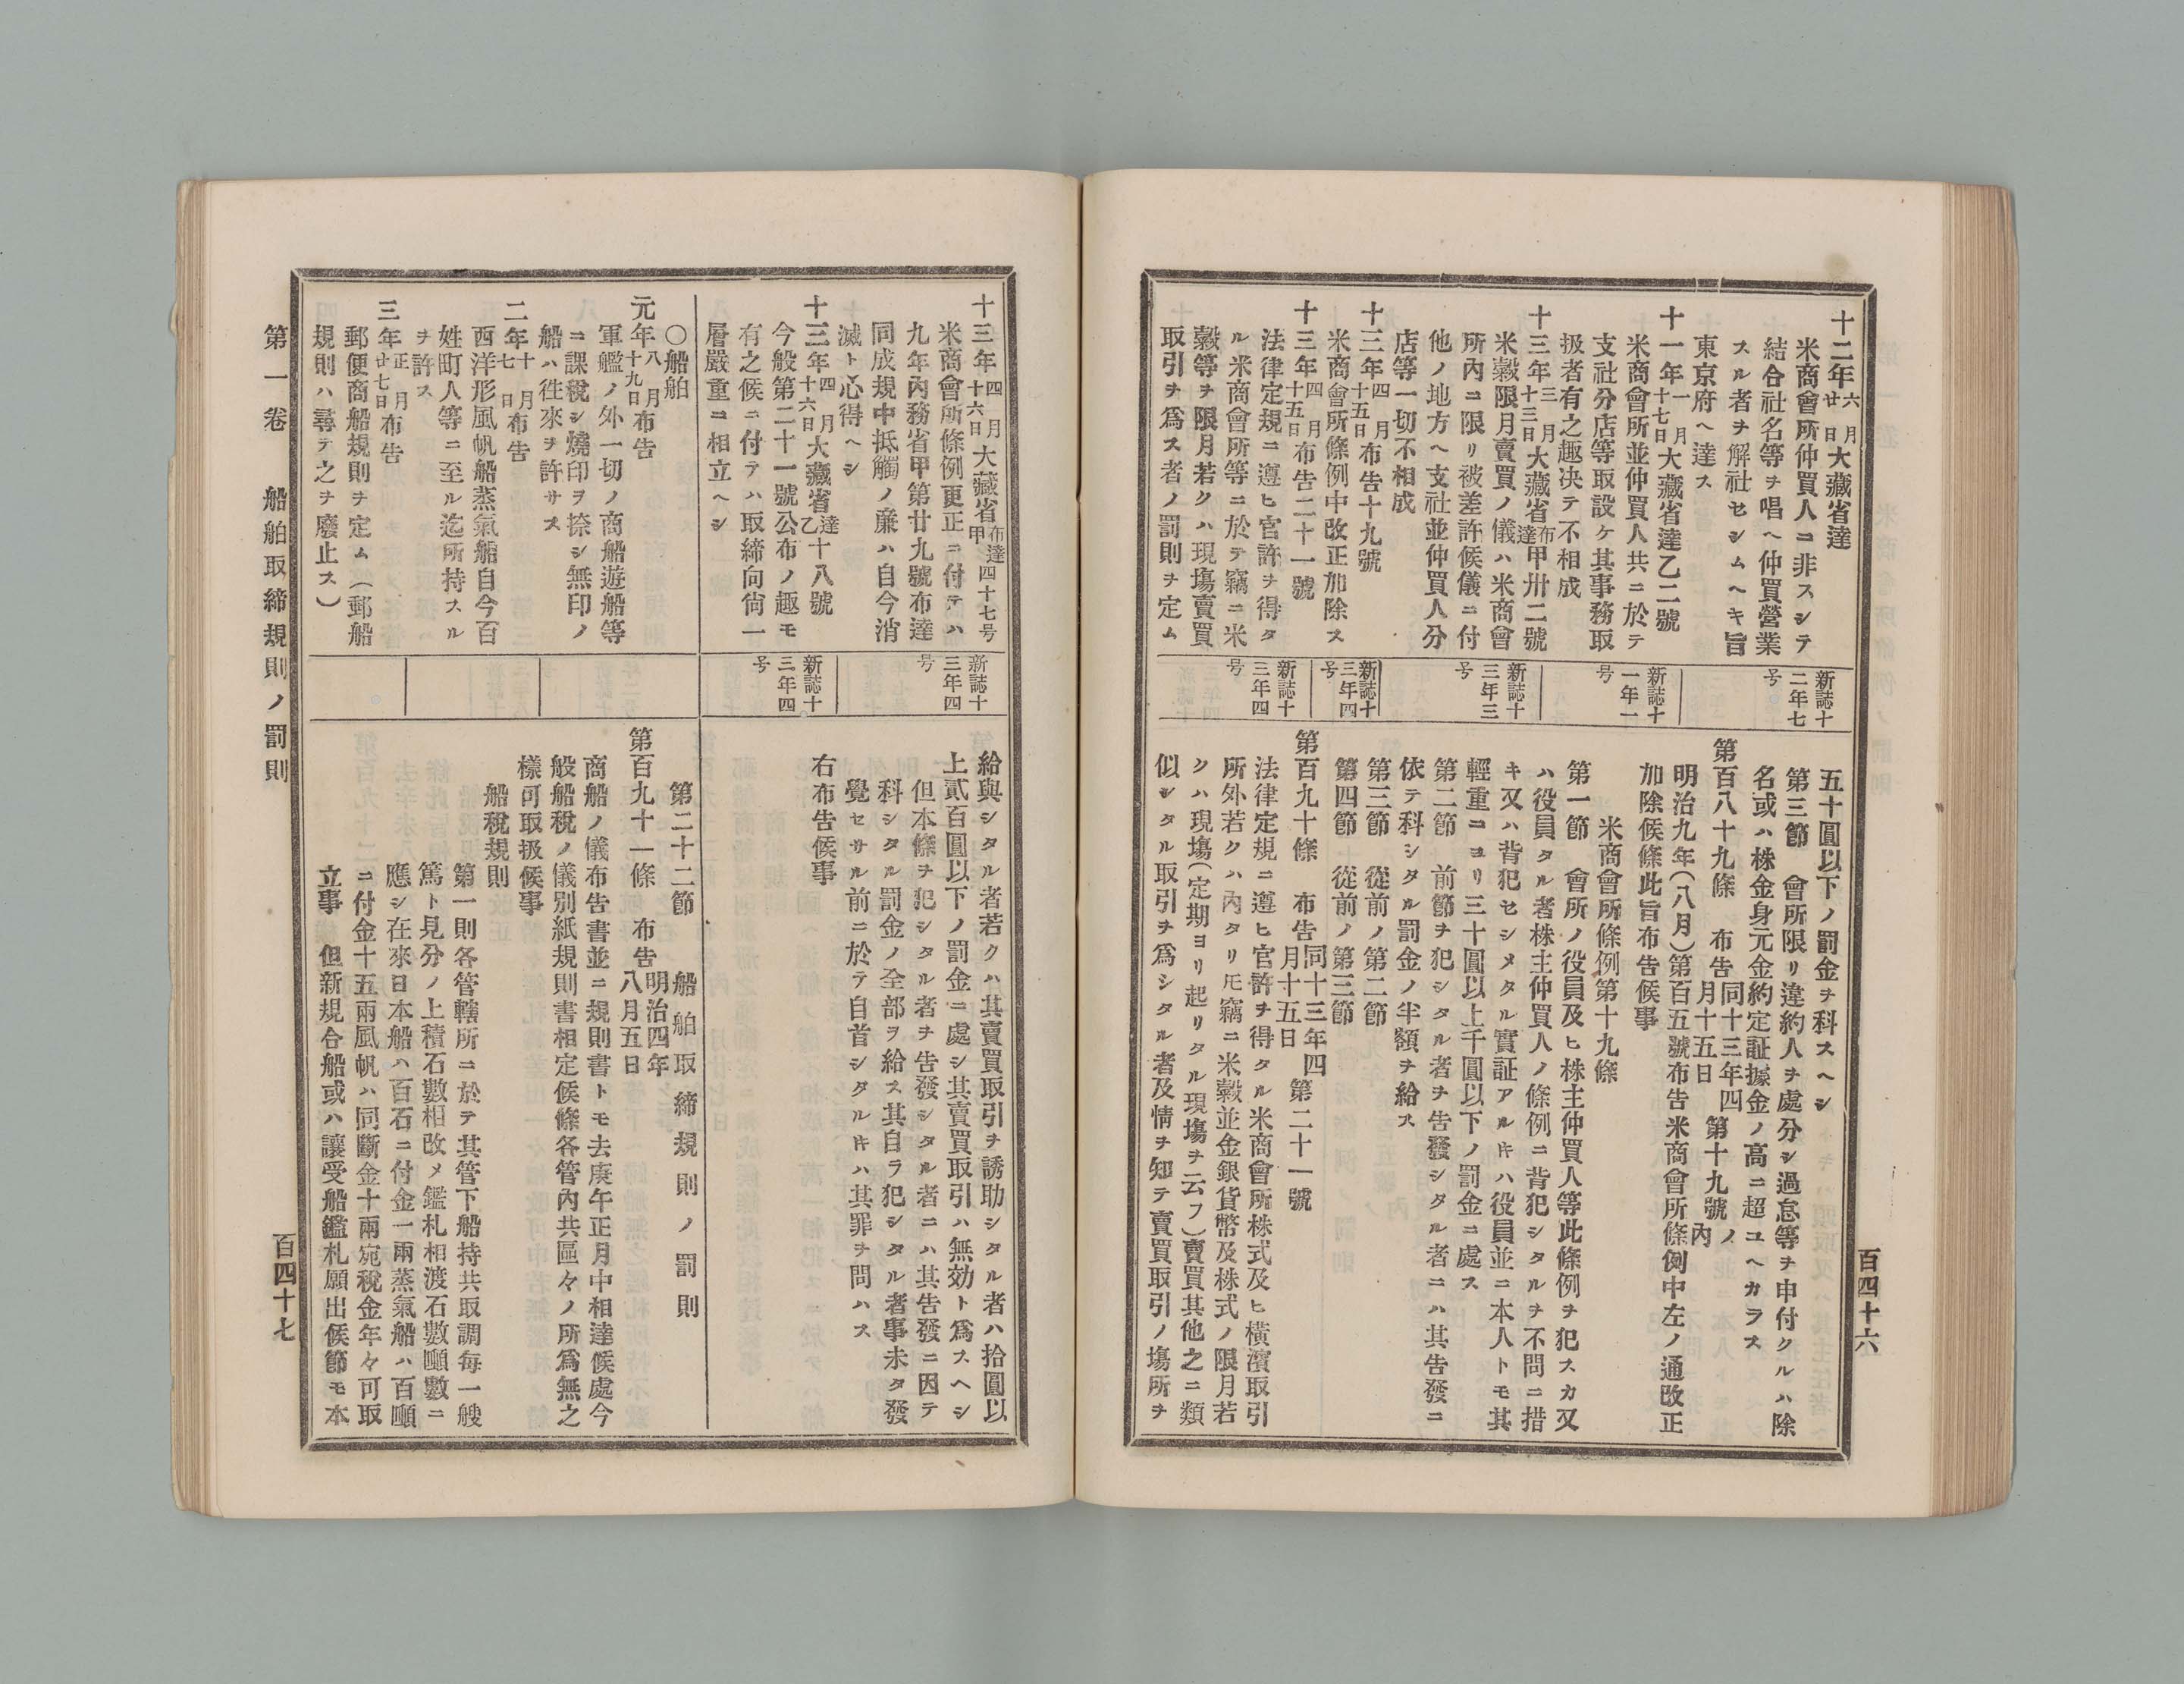 百四十六
十二年六月廿日大藏省達
米商會所仲買人ニ非スシテ
結合社名等ヲ唱ヘ仲買營業
スル者ヲ解社セシムヘキ旨
東京府ヘ達ス
十一年一月十七日大藏省達乙二號
米商會所並仲買人共ニ於テ
支社分店等取設ケ其事務取
扱者有之趣決テ不相成
十三年三月十三日大藏省布達甲卅二號
米穀限月賣買ノ儀ハ米商會
所內ニ限リ被差許候儀ニ付
他ノ地方ヘ支社並仲買人分
店等一切不相成
十三年四月十五日布告十九號
米商會所條例中改正加除ス
十三年四月十五日布告二十一號
法律定規ニ遵ヒ官許ヲ得タ
ル米商會所等ニ於テ竊ニ米
穀等ヲ限月若クハ現塲賣買
取引ヲ爲ス者ノ罰則ヲ定ム
新誌十二年七号
新誌十一年一号
新誌十三年三号
新誌十三年四号
新誌十三年四号
五十圓以下ノ罰金ヲ科スヘシ
第三節 會所限リ違約人ヲ處分シ過怠等ヲ申付クルハ除
名或ハ株金身元金約定証據金ノ高ニ超ユヘカラス
第百八十九條 布告同十三年四月十五日 第十九號ノ內
明治九年(八月)第百五號布告米商會所條例中左ノ通改正
加除候條此旨布告候事
米商會所條例第十九條
第一節 會所ノ役員及ヒ株主仲買人等此條例ヲ犯スカ又
ハ役員タル者株主仲買人ノ條例ニ背犯シタルヲ不問ニ措
キ又ハ背犯セシメタル實証アル𪜈ハ役員並ニ本人トモ其
輕重ニヨリ三十圓以上千圓以下ノ罰金ニ處ス
第二節 前節ヲ犯シタル者ヲ告發シタル者ニハ其告發ニ
依テ科シタル罰金ノ半額ヲ給ス
第三節 從前ノ第二節
第四節 從前ノ第三節
第百九十條 布告同十三年四月十五日 第二十一號
法律定規ニ遵ヒ官許ヲ得タル米商會所株式及ヒ橫濱取引
所外若クハ內タリ𪜈竊ニ米穀並金銀貨幣及株式ノ限月若
クハ現塲(定期ヨリ起リタル現塲ヲ云フ)賣買其他之ニ類
似シタル取引ヲ爲シタル者及情ヲ知テ賣買取引ノ塲所ヲ
十三年四月十六日大藏省布達甲四十七号
米商會所條例更正ニ付テハ
九年內務省甲第廿九號布達
同成規中抵觸ノ廉ハ自今消
滅ト心得ヘシ
十三年四月十六日大藏省達乙十八號
今般第二十一號公布ノ趣モ
有之候ニ付テハ取締向尙一
層嚴重ニ相立ヘシ
〇船舶
元年八月十九日布告
軍艦ノ外一切ノ商船遊船等
ニ課稅シ燒印ヲ捺シ無印ノ
船ハ徃來ヲ許サス
二年十月七日布告
西洋形風帆船蒸氣船自今百
姓町人等ニ至ル迄所持スル
ヲ許ス
三年正月廿七日布告
郵便商船規則ヲ定ム(郵船
規則ハ尋テ之ヲ廢止ス)
新誌十三年四号
新誌十三年四号
給與シタル者若クハ其賣買取引ヲ誘助シタル者ハ拾圓以
上貳百圓以下ノ罰金ニ處シ其賣買取引ハ無効ト爲スヘシ
但本條ヲ犯シタル者ヲ告發シタル者ニハ其告發ニ因テ
科シタル罰金ノ全部ヲ給ス其自ラ犯シタル者事未タ發
覺セサル前ニ於テ自首シタル𪜈ハ其罪ヲ問ハス
右布告候事
第二十二節 船舶取締規則ノ罰則
第百九十一條 布告明治四年八月五日
商船ノ儀布告書並ニ規則書トモ去庚午正月中相達候處今
般船稅ノ儀別紙規則書相定候條各管內共區々ノ所爲無之
樣可取扱候事
船稅規則
第一則各管轄所ニ於テ其管下船持共取調每一艘
篤ト見分ノ上積石數相改メ鑑札相渡石數噸數ニ
應シ在來日本船ハ百石ニ付金一兩蒸氣船ハ百噸
ニ付金十五兩風帆ハ同斷金十兩宛稅金年々可取
立事 但新規合船或ハ讓受船鑑札願出候節モ本
第一卷 船舶取締規則ノ罰則
百四十七